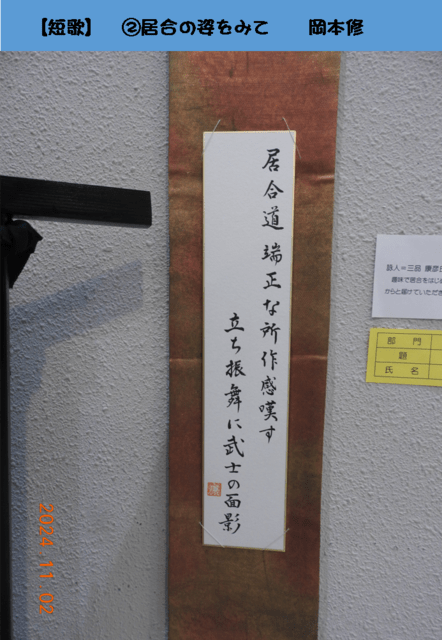 【短歌】 ②居合の姿をみて 岡本修
居合道 端正な所作感嘆す
立ち振舞に武士の面影
詠人＝三品 康彦
趣味で居合をはじめ
からと届けていただき
部 門
題
氏 名
2024 11 02